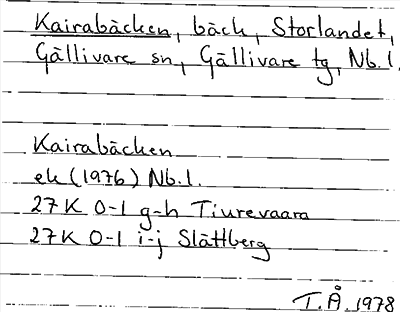 Kairabäcken, bäck, Storlandet,
Gällivare sn, Gällivare tg, Nb.l.
Kairabäcken
ek (1976) Nb.l.
27K 0-1 g-h Tiurevaara
27K 0-1 i-j Slättberg
T.Å. 1978